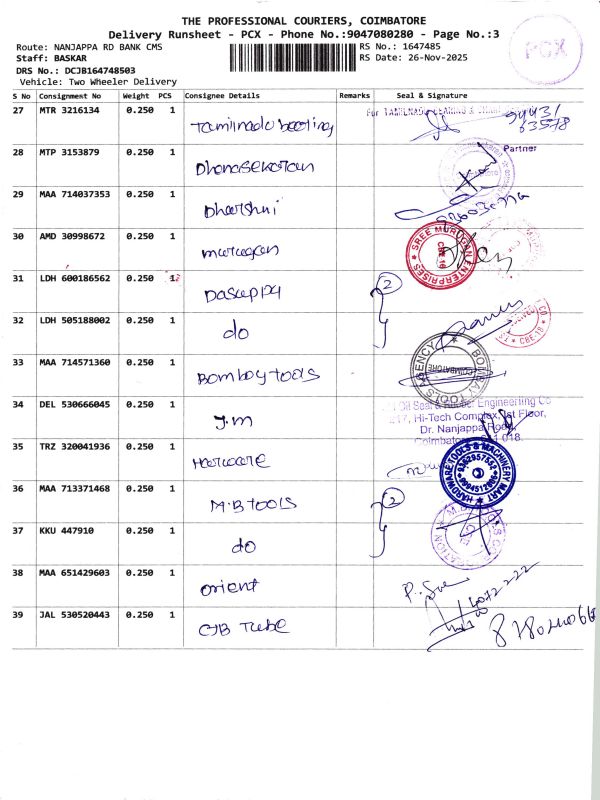 THE PROFESSIONAL COURIERS, COIMBATORE
Delivery Runsheet - PCX - Phone No.:9047080280 - Page No.:3
Route: NANJAPPA RD BANK CMS
RS No.: 1647485
Staff: BASKAR
RS Date: 26-Nov-2025
DRS No.: DCJB164748503
Vehicle: Two Wheeler Delivery
PCX
S No Consignment No Weight PCS Consignee Details Remarks Seal & Signature
27 MTR 3216134 0.250 1 Tamilnadu bearing
For TAMILNADU BEARING &
94431
63578
28 MTP 3153879 0.250 1 Dhanasekaran
Partner
29 MAA 714037353 0.250 1 Dharshni
30 AMD 30998672 0.250 1 murugan
SREE MURUGAN ENTERPRISES
CBE-18
31 LDH 600186562 0.250 1 Dasuppa
2
32 LDH 505188002 0.250 1 do
CBE-18
33 MAA 714571360 0.250 1 Bombay tools
BOMBAY TOOLS AGENCY
COIMBATORE
34 DEL 530666045 0.250 1 J.m
Oil Seal & Rubber Engineering Co
Hi-Tech Complex, 1st Floor,
Dr. Nanjappa Road,
Coimbatore - 641 018.
35 TRZ 320041936 0.250 1 Hardware
HARDWARE TOOLS & MACHINERY MART
9994512986
36 MAA 713371468 0.250 1 M.B tools
2
37 KKU 447910 0.250 1 do
38 MAA 651429603 0.250 1 orient
39 JAL 530520443 0.250 1 GB Tube